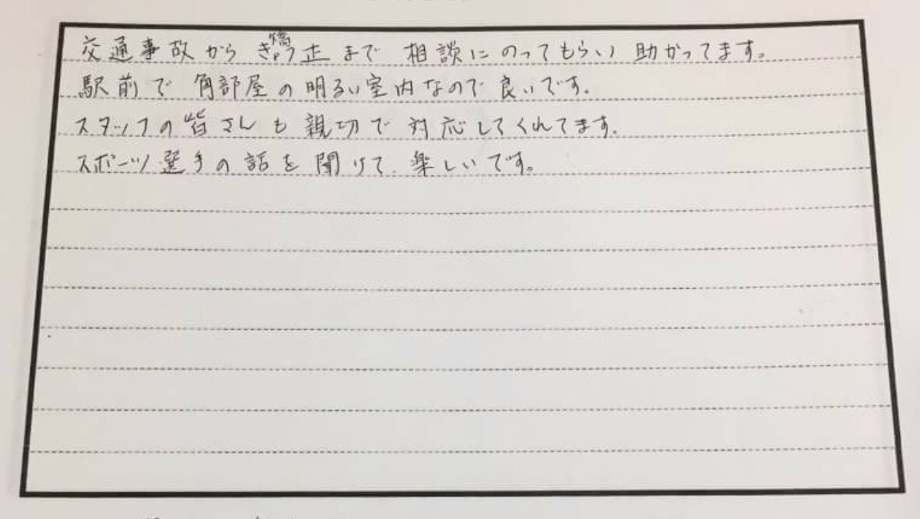 交通事故からきょう矯正まで 相談にのってもらい 助かってます。
駅前で 角部屋の明るい室内なので良いです。
スタッフの皆さんも親切で対応してくれてます。
スポーツ選手の話を聞けて、楽しいです。